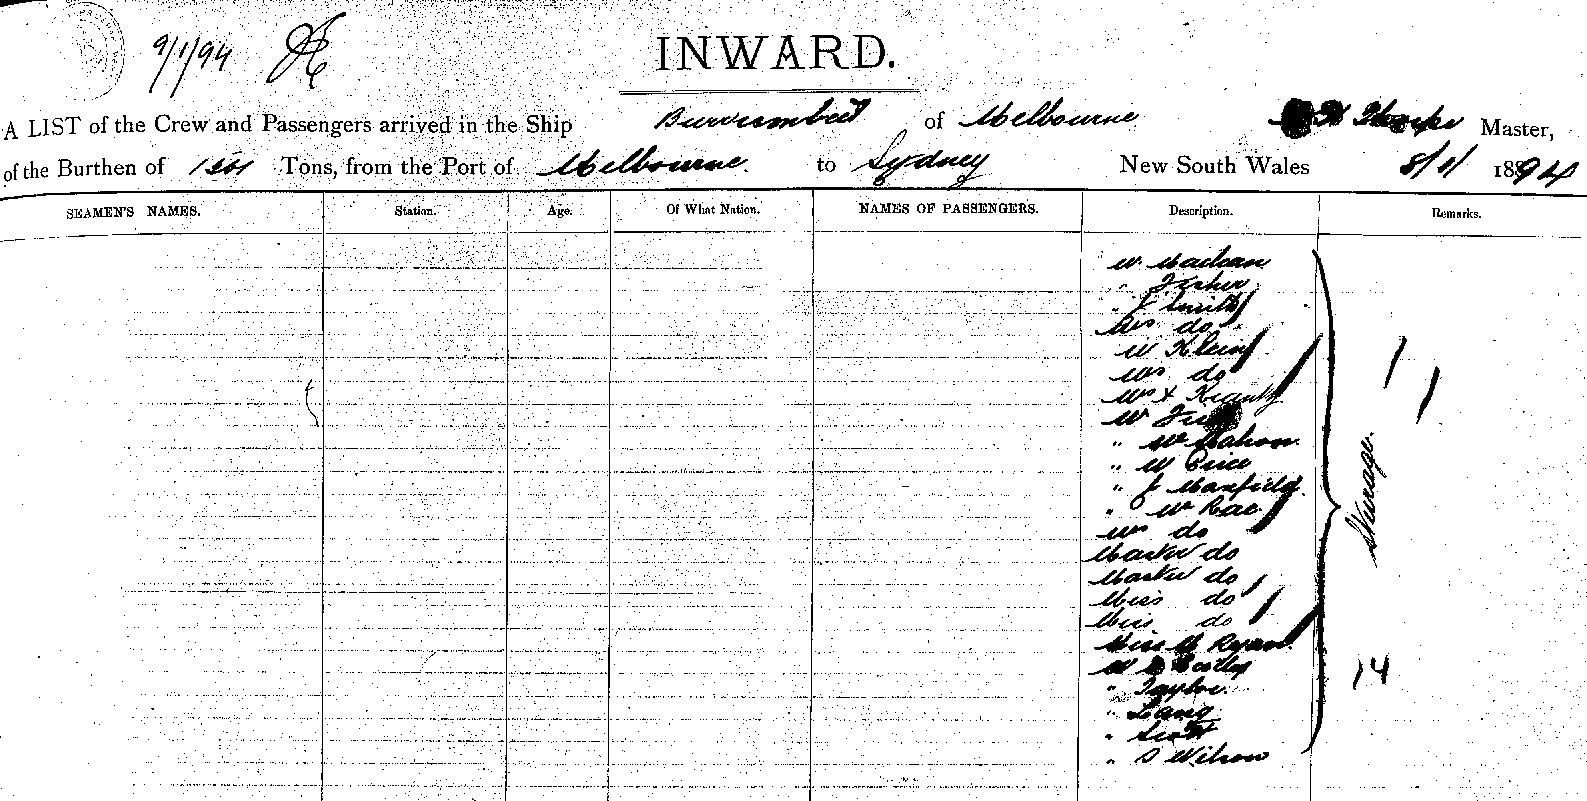 9/1/94
INWARD.
A LIST of the Crew and Passengers arrived in the Ship Burrumbeet of Melbourne Master,
of the Burthen of Tons, from the Port of Melbourne to Sydney New South Wales 8/1/ 1894
SEAMEN'S NAMES. Station. Age. Of What Nation. NAMES OF PASSENGERS. Description. Remarks.
" Fisher
" J Smith
Mrs do
Mr Klein
Mrs do
Mr
" Mr Mahon
" Mr Price
" J Maxfield
" Mr Rae
Mrs do
Master do
Master do
Miss do
Miss do
Miss M Ryan
" Taylor
" Lang
" Scott
" S Wilson
Steerage
14